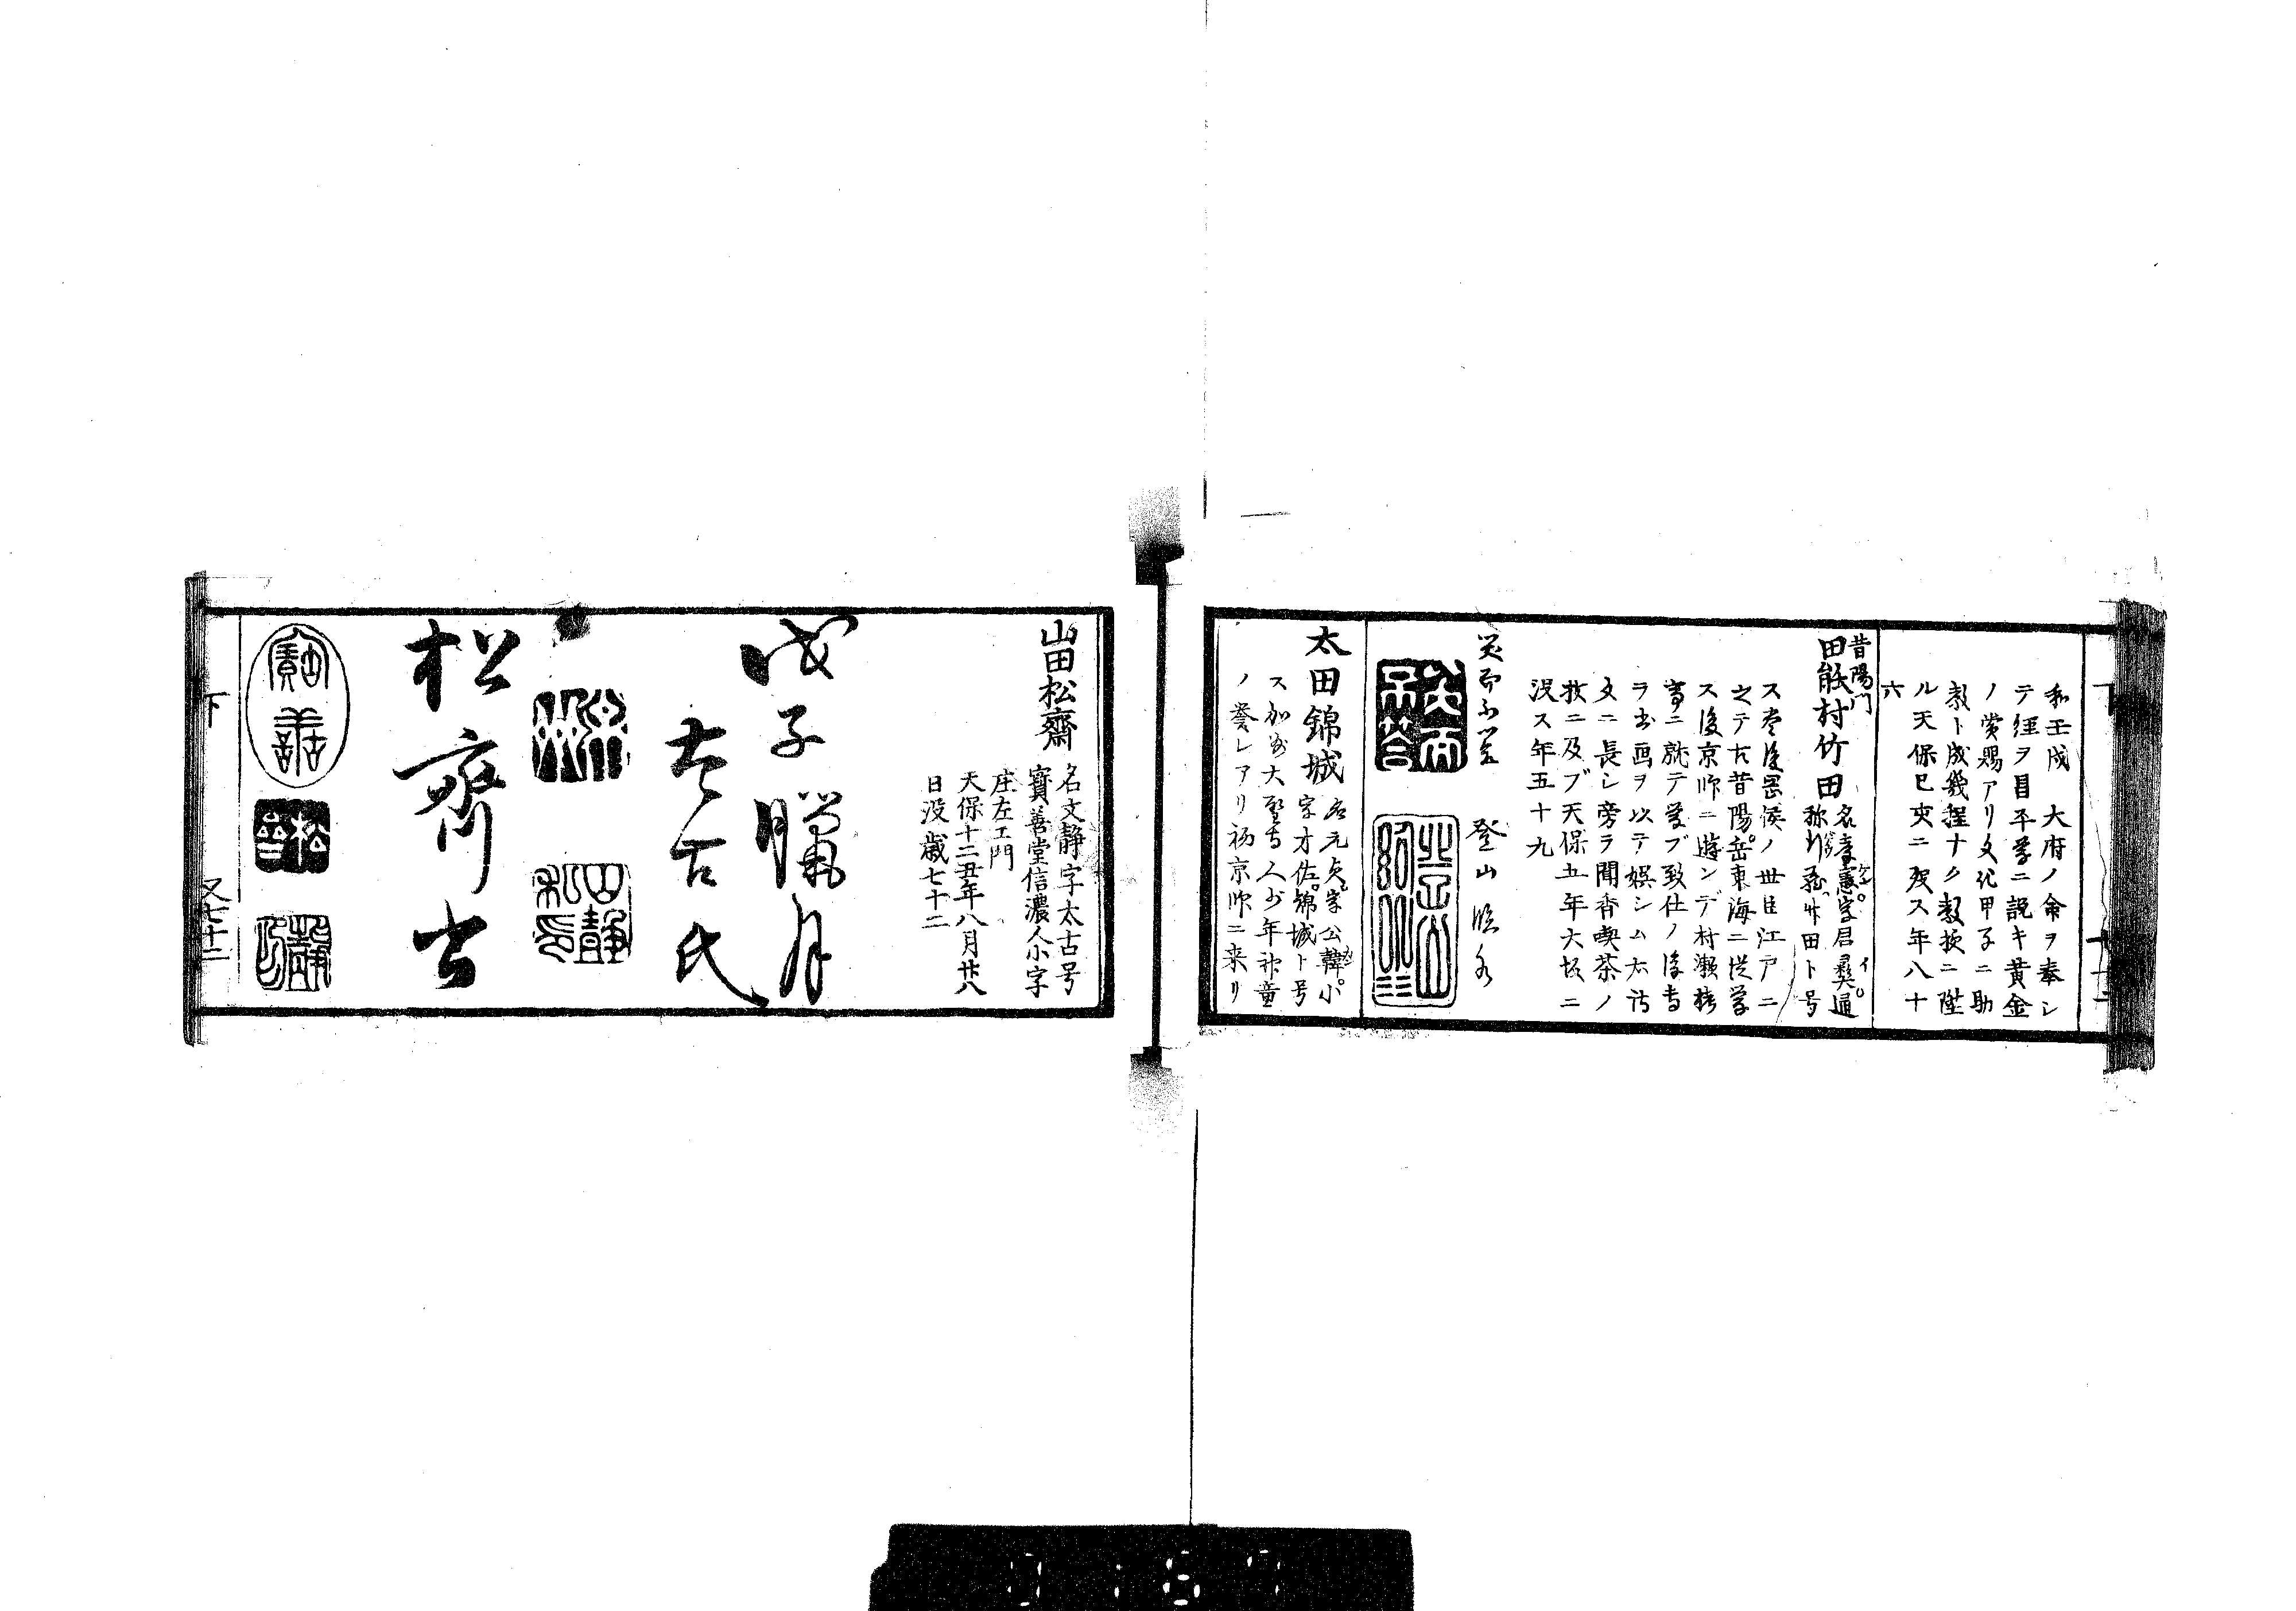 和壬戌　大府ノ命ヲ奉シ
テ經ヲ昌平黌ニ説キ黄金
ノ賞賜アリ文化甲子ニ助
教ト成幾程ナク教授ニ陞
ル天保己亥ニ歿ス年八十
六
昔陽門
田能村竹田
名孝憲字君彜通
称行蔵竹田ト号
ス豊後岡侯ノ世臣江戸ニ
之テ古昔陽岳東海ニ從学
ス後京師ニ遊ンデ村瀬栲
亭ニ就テ学ブ致仕ノ後専
ラ書画ヲ以テ娯シム尤詩
文ニ長シ旁ラ聞香喫茶ノ
技ニ及ブ天保五年大坂ニ
没ス年五十九
笑而不答　登山臨水
笑而不答
太田錦城
名元貞字公幹小
字才佐錦城ト号
ス加州大聖寺人少年神童
ノ誉レアリ初京師ニ来リ
山田松齋
名文静字太古号
寳善堂信濃人小字
庄左エ門
天保十二丑年八月廿八
日没歳七十二
戊子臘月
太古氏
松齋書
寳善
下
又七十二